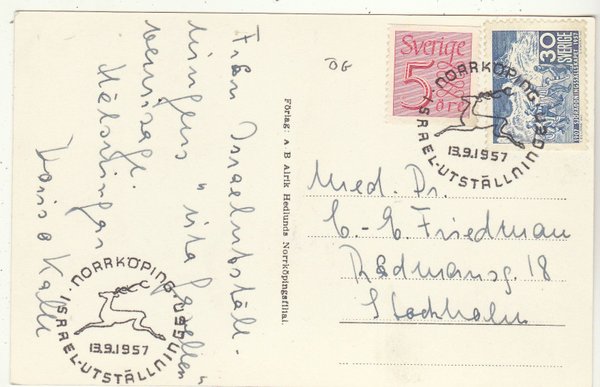 Från Israelutställ-
ningens "vita gasellen"
vernissage.
Hälsningar
Kalle
DG
Förlag: A B Alrik Hedlunds Norrköpingsfilial.
Sverige
5
öre
30
SVERIGE
NORRKÖPING
ISRAEL-UTSTÄLLNINGEN
13.9.1957
Med. Dr.
C-E. Friedman
Rådmansg. 18
Stockholm
NORRKÖPING
ISRAEL-UTSTÄLLNINGEN
13.9.1957